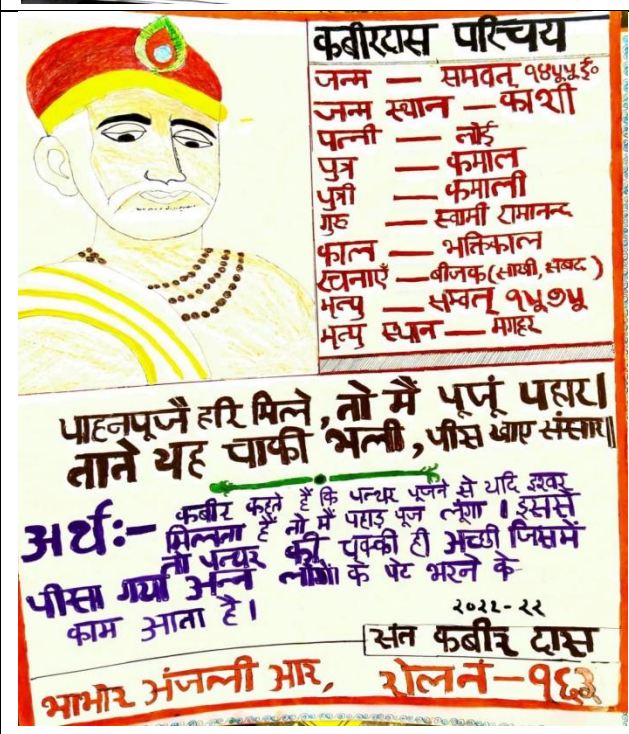 कबीरदास परिचय
जन्म — समवत् १४५५ ई०
जन्म स्थान — काशी
पत्नी — लोई
पुत्र — कमाल
पुत्री — कमाली
गुरु — स्वामी रामानन्द
काल — भक्तिकाल
रचनाएँ — बीजक (साखी, सबद)
मृत्यु — सम्वत् १५७५
मृत्यु स्थान — मगहर
पाहनपूजै हरि मिले, तो मैं पूजूं पहार।
ताते यह चाकी भली, पीस खाए संसार॥
अर्थ:- कबीर कहते हैं कि पत्थर पूजने से यदि इश्वर
मिलता है तो मैं पहाड़ पूज लूंगा। इससे
तो पत्थर की चक्की ही अच्छी जिसमें
पीसा गया अन्न लोगों के पेट भरने के
काम आता है।
२०२२-२२
संत कबीर दास
भाभोर अंजली आर, रोलनं-१६३